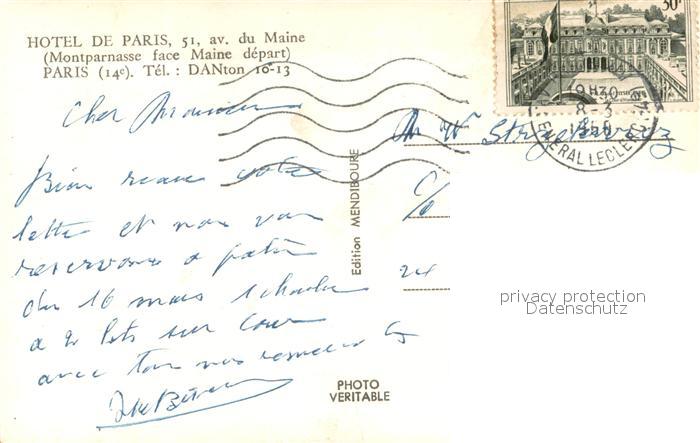 HOTEL DE PARIS, 51, av. du Maine
(Montparnasse face Maine départ)
PARIS (14e). Tél. : DANton 10-13
30f
Cher Monsieur
Bien reçu votre
lettre et nous vous
réservons à partir
du 16 mars 1 chambre
a 2 lits sur cour
avec tous nos
Edition MENDIBOURE
PHOTO
VERITABLE
C/o
24
GÉNÉRAL LECLERC
privacy protection
Datenschutz